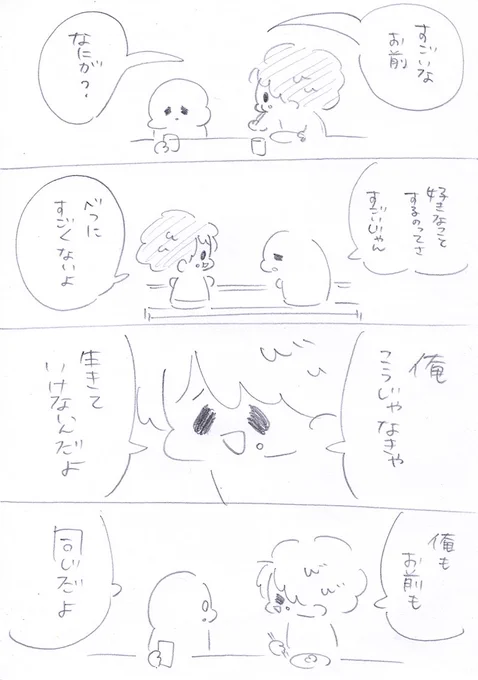 すごいな
お前
なにが?
好きなって
するのってさ
すごいじゃん
べつに
すごくないよ
俺
こうじゃなきゃ
生きて
いけないんだよ
俺も
お前も
同じだよ